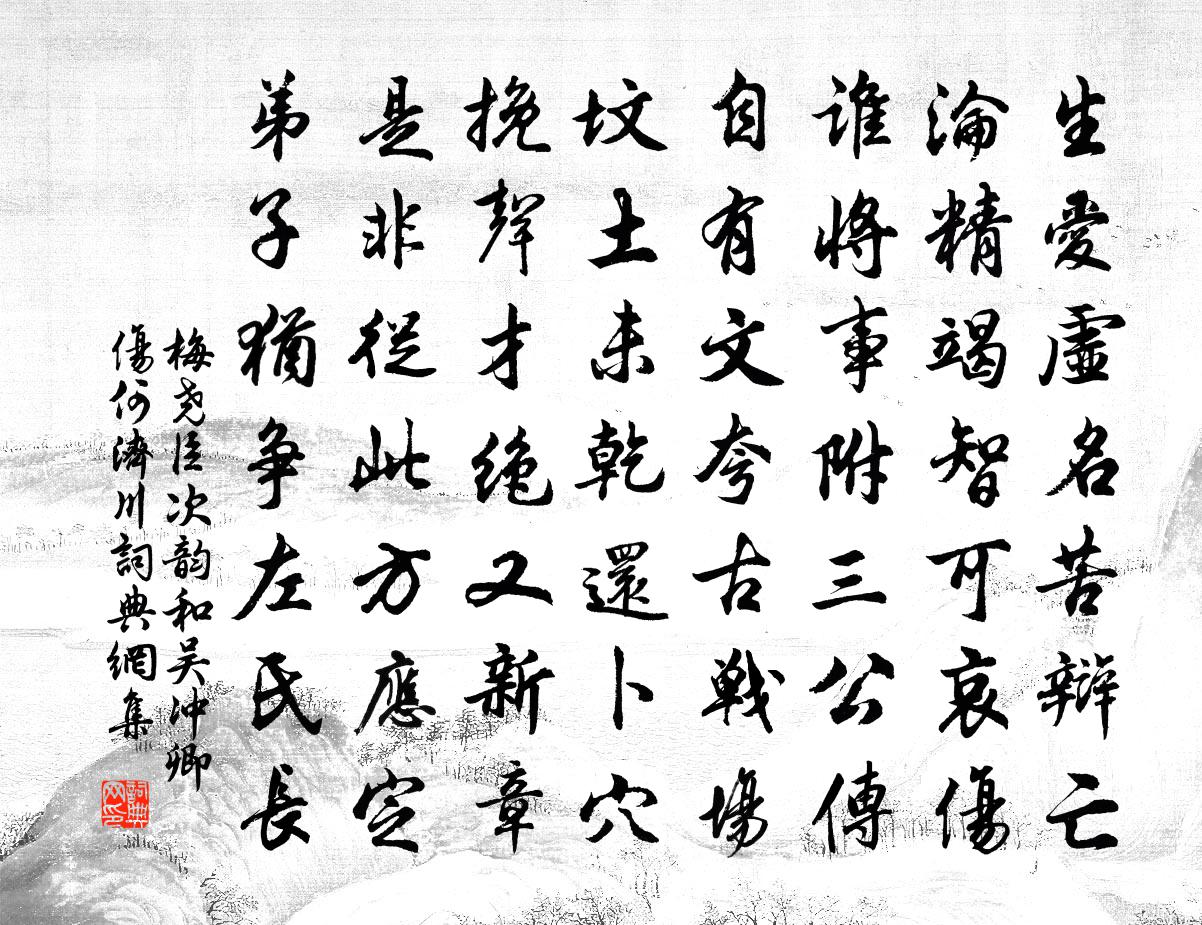 生愛虛名苦辯亡
淪精竭智可哀傷
誰將事附三公傳
自有文夸古戰場
坟土未乾還卜穴
挽聲才絕又新章
是非從此方應定
弟子猶爭左氏長
梅堯臣次韵和吴冲卿
傷何濟川詞典網集
詞典网印